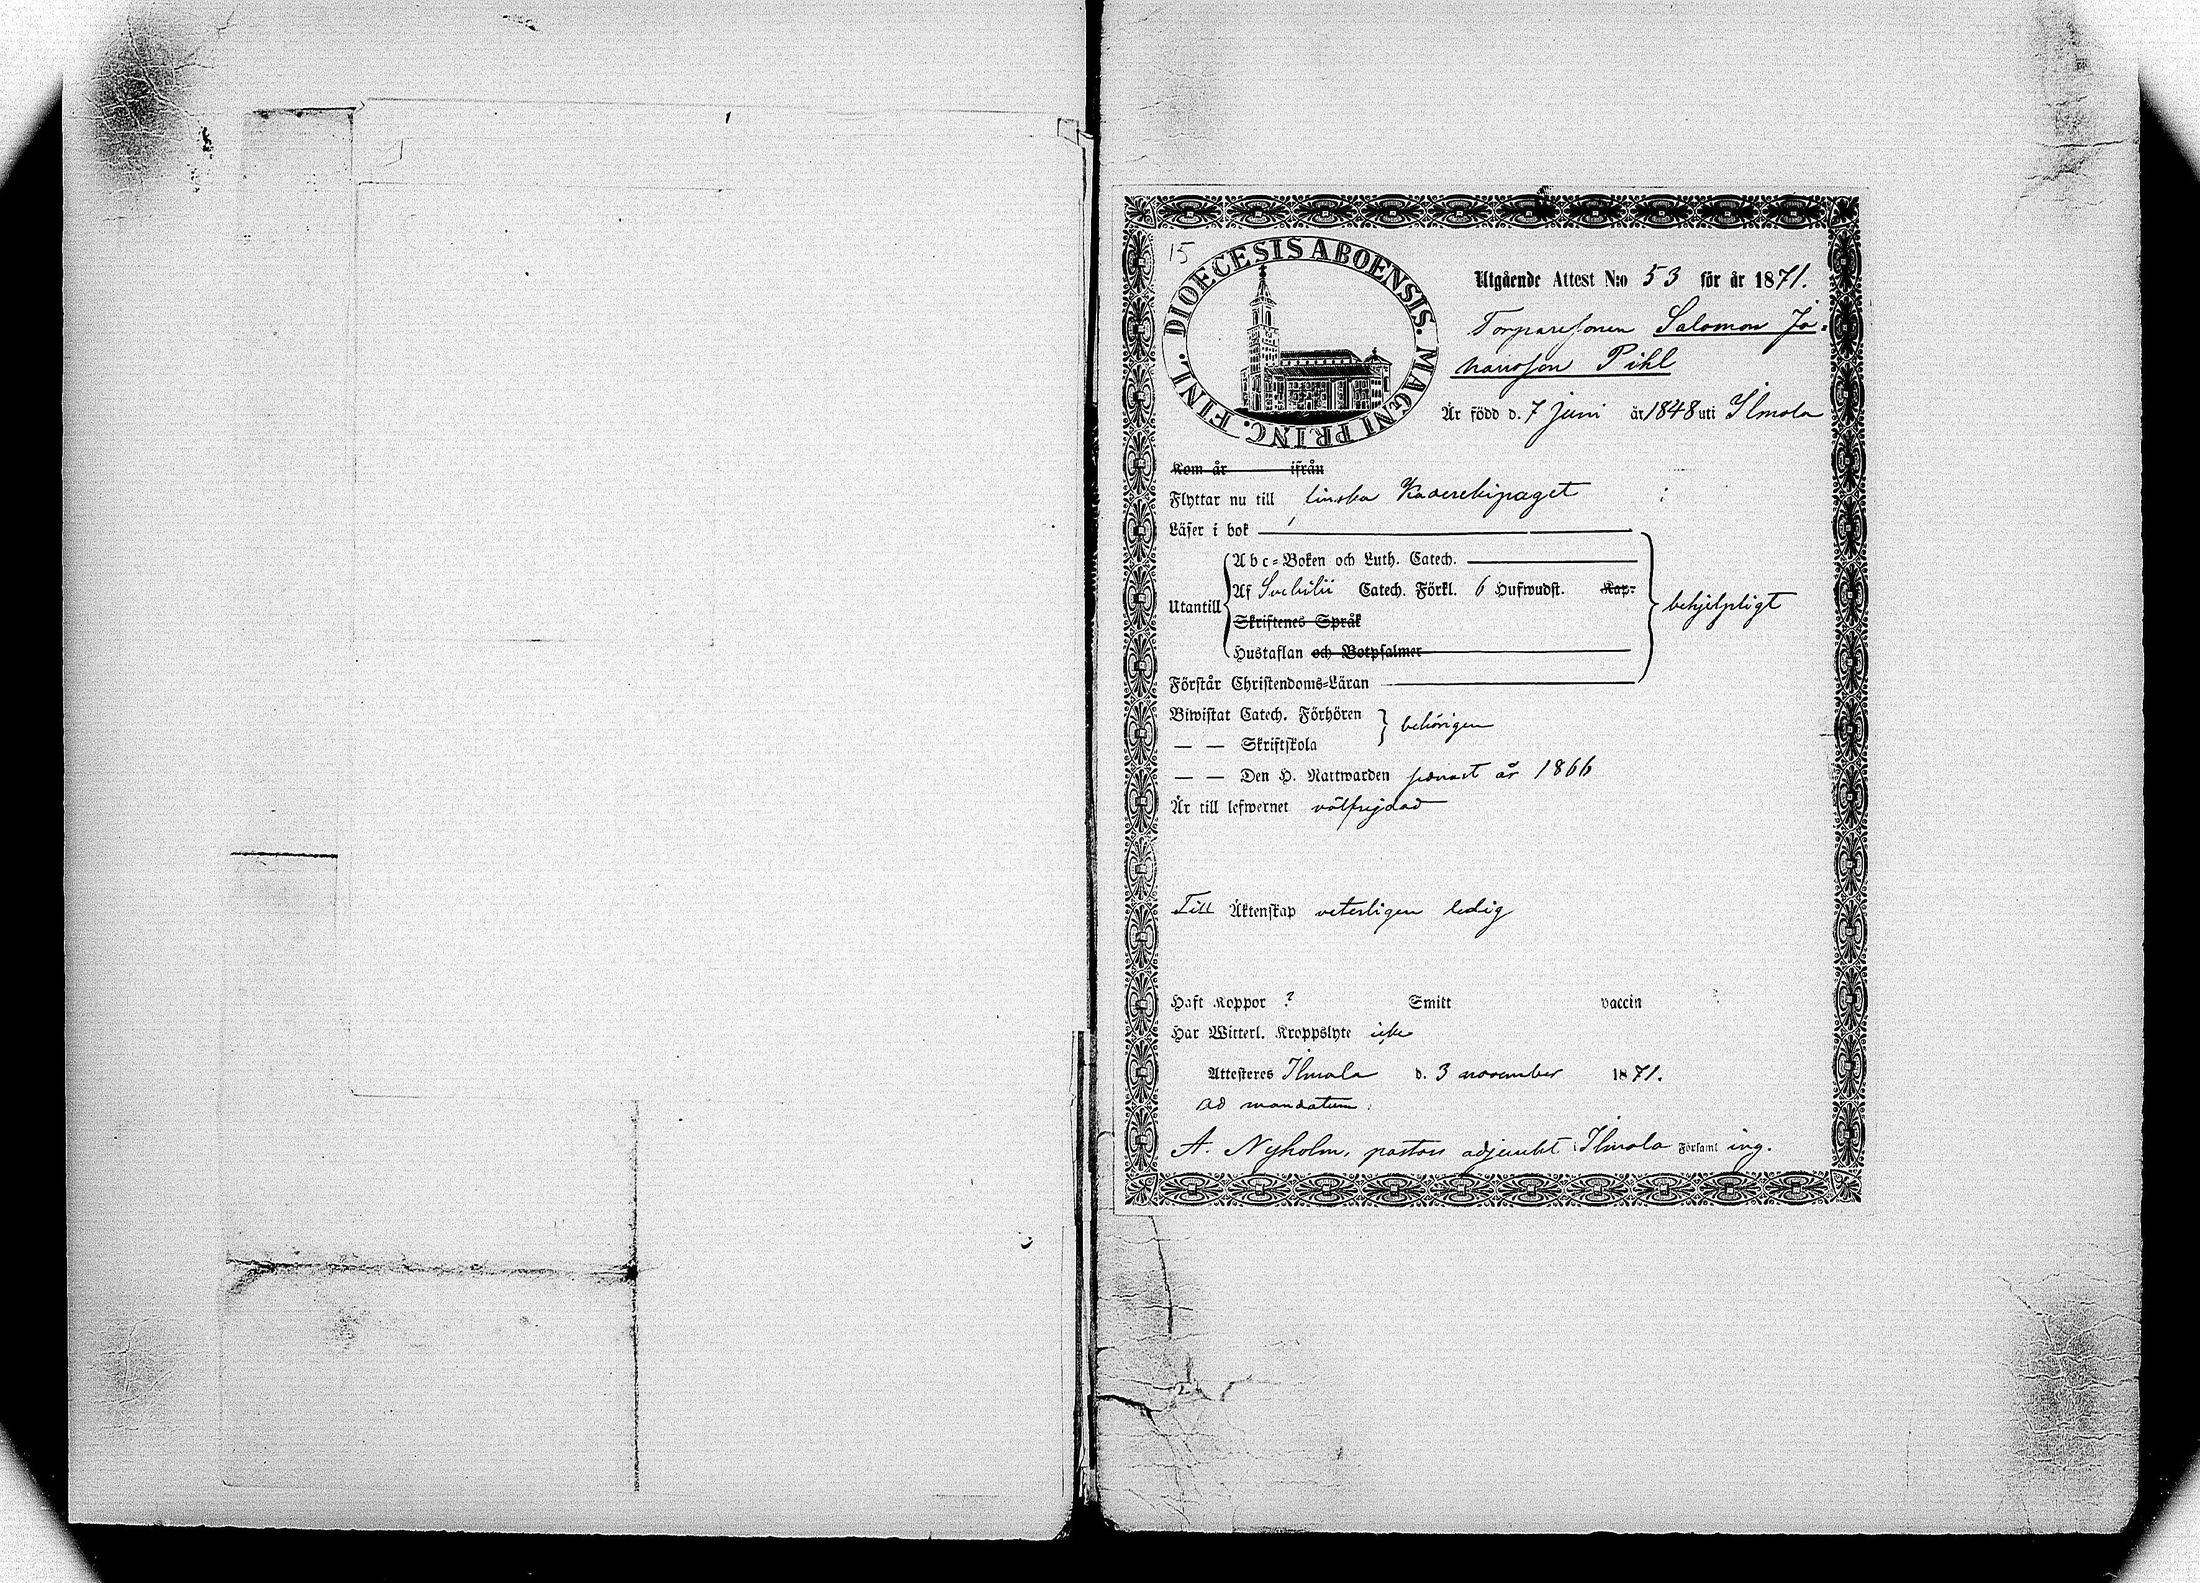 15
DIOECESIS ABOENSIS. MAGNI PRINC. FINL.
Utgående Attest N:o 53 för år 1871.
Torparesonen Salomon Jo-
hansson Pihl
Är född d. 7 Juni år 1848 uti Ilmola
Kom år ifrån
Flyttar nu till finska
Läser i bok
Abc-Boken och Luth. Catech.
Utantill Af Svebilii Catech. Förkl. 6 Hufwudst. Kap. behjelpligt
Skriftenes Språk
Hustaflan och Botpsalmer
Förstår Christendoms-Läran
Biwistat Catech. Förhören behörigen
— — Skriftskola
— — Den H. Nattwarden senast år 1866
Är till lefwernet välfrejdad
Till Äktenskap veterligen ledig
Haft Koppor ? Smitt vaccin
Har Witterl. Kroppslyte icke
Attesteras Ilmola d. 3 november 1871.
ad mandatum:
A. Nyholm, pastors adjunkt i Ilmola Församl ing.